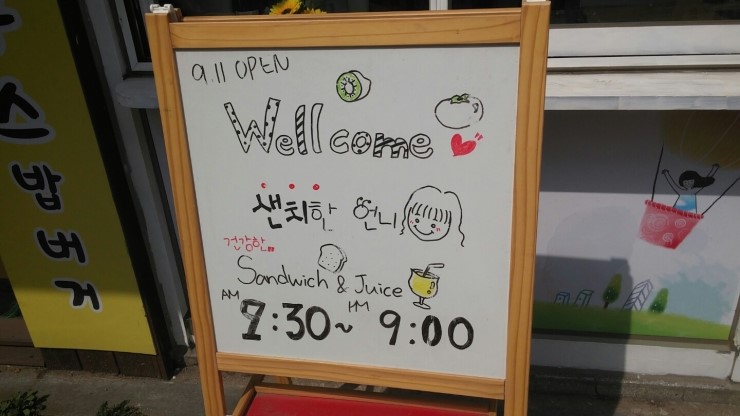 9.11 OPEN
Wellcome
샌치한 언니
건강한
Sandwich & Juice
AM 7:30~ PM 9:00
스밥버거